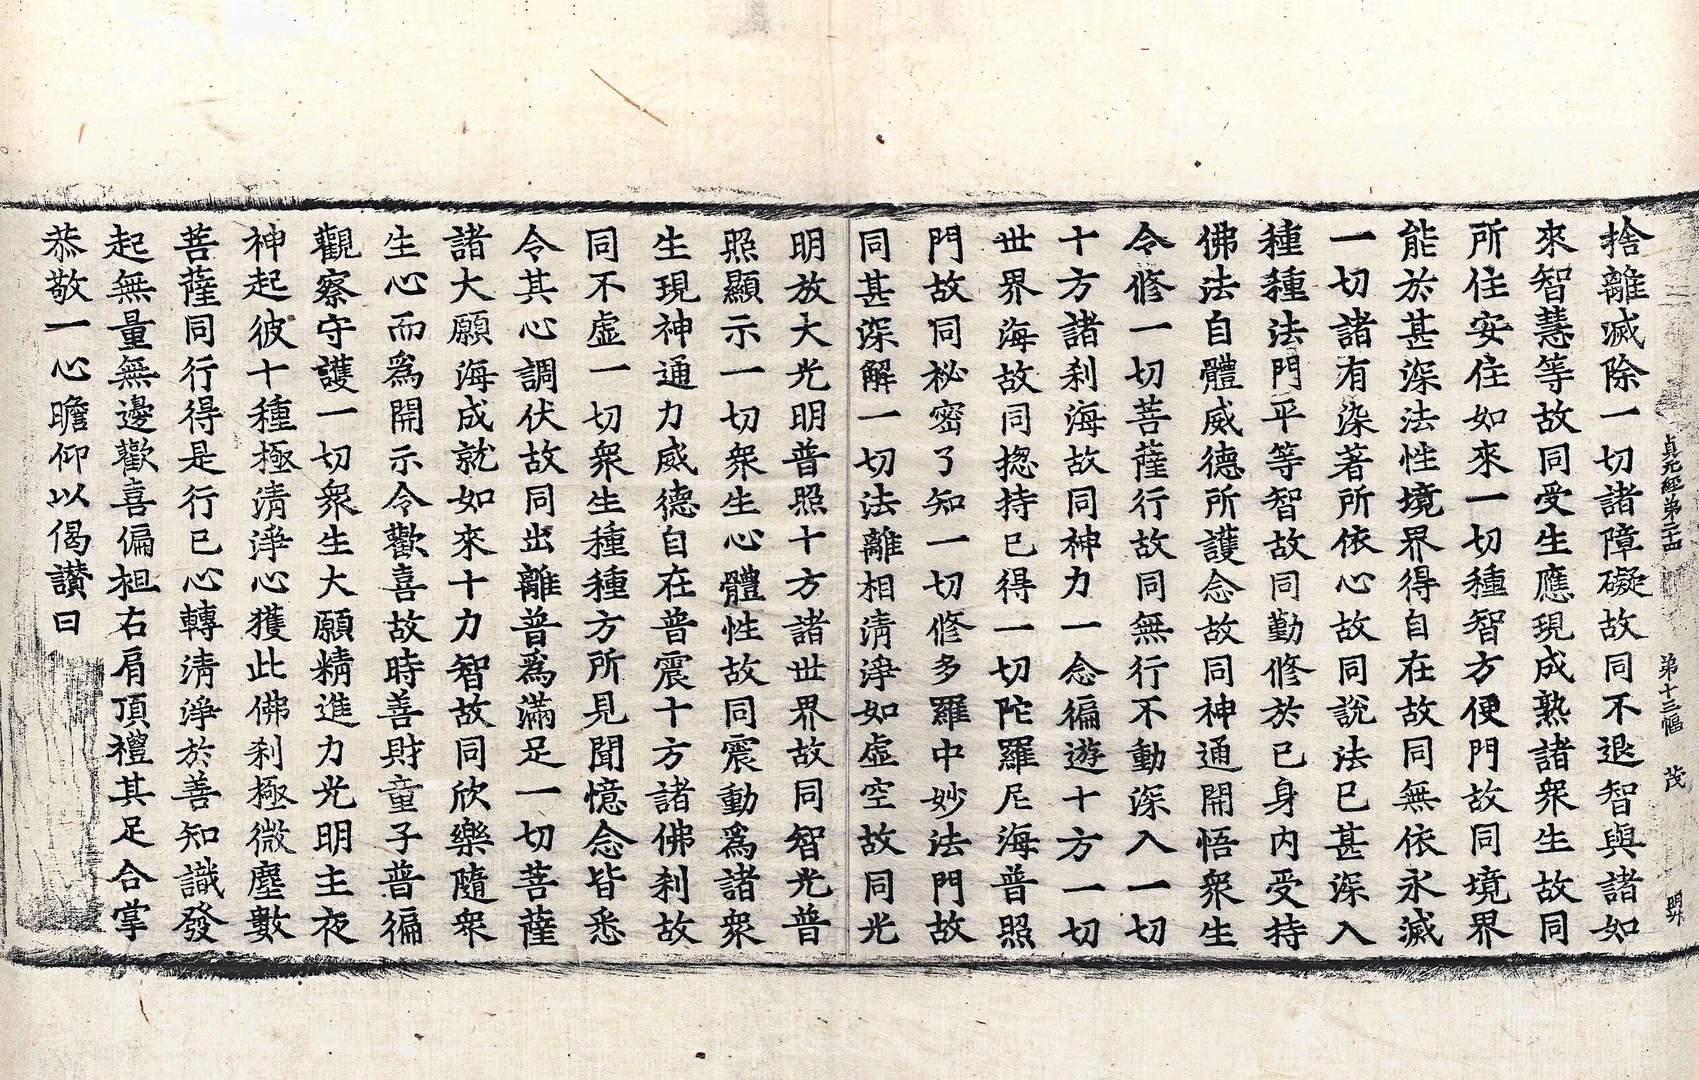 貞元經第二十四 第十三幅 茂
捨離滅除一切諸障礙故同不退智與諸如
來智慧等故同受生應現成熟諸衆生故同
所住安住如來一切種智方便門故同境界
能於甚深法性境界得自在故同無依永滅
一切諸有染著所依心故同說法已甚深入
種種法門平等智故同勤修於已身內受持
佛法自體威德所護念故同神通開悟衆生
令修一切菩薩行故同無行不動深入一切
十方諸刹海故同神力一念徧遊十方一切
世界海故同揔持已得一切陀羅尼海普照
門故同袐密了知一切修多羅中妙法門故
同甚深解一切法離相清淨如虛空故同光
明放大光明普照十方諸世界故同智光普
照顯示一切衆生心體性故同震動爲諸衆
生現神通力威德自在普震十方諸佛刹故
同不虛一切衆生種種方所見聞憶念皆悉
令其心調伏故同出離普爲滿足一切菩薩
諸大願海成就如來十力智故同欣樂隨衆
生心而爲開示令歡喜故時善財童子普徧
觀察守護一切衆生大願精進力光明主夜
神起彼十種極清淨心獲此佛刹極微塵數
菩薩同行得是行已心轉清淨於善知識發
起無量無邊歡喜偏袒右肩頂禮其足合掌
恭敬一心瞻仰以偈讚曰